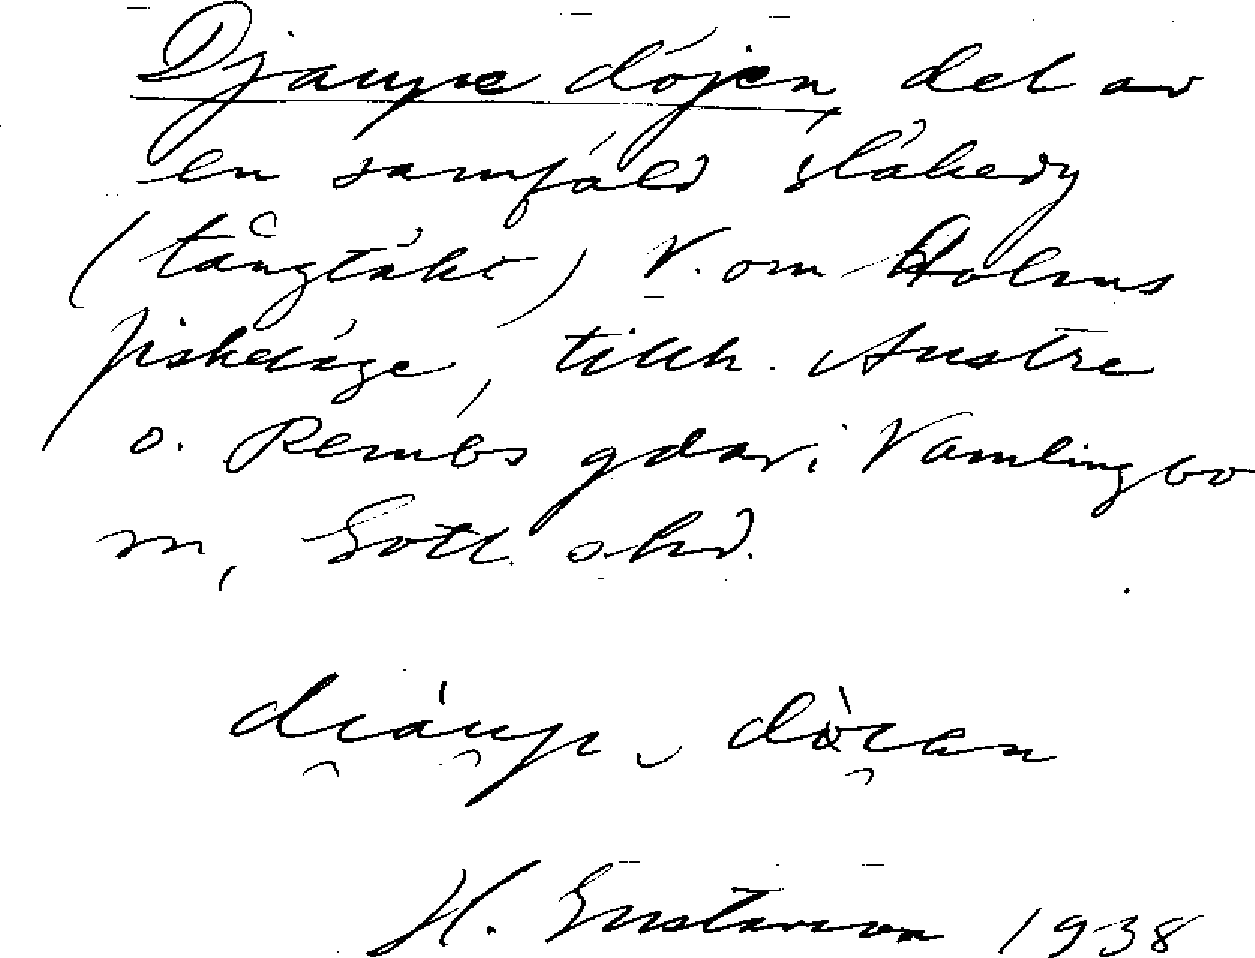 Djaupe döjen, del av
en samfäld släkedy
(tångtäkt) V. om Holms
fiskeläge, tillh. Austre
o. Rembs gdar i Vamlingbo
sn, Gotl. s. hd.
diáup dòien
H. Gustavson 1938